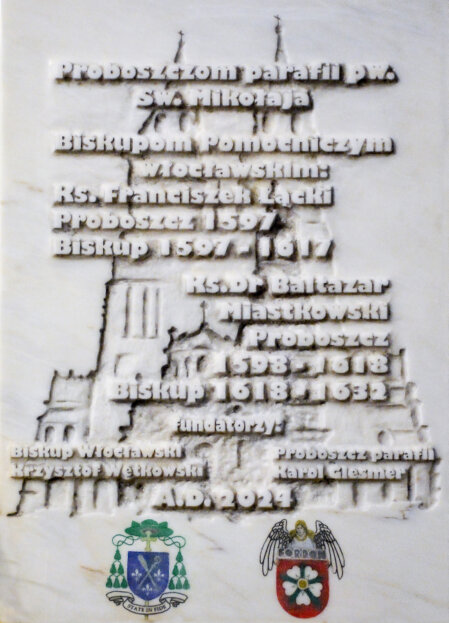 Proboszczom parafii pw.
Św. Mikołaja
Biskupom Pomocniczym
Włocławskim:
Ks. Franciszek Łącki
Proboszcz 1597
Biskup 1597 - 1617
Ks. Dr Baltazar
Miastkowski
Proboszcz
1598 - 1618
Biskup 1618 - 1632
fundatorzy:
Biskup Włocławski
Krzysztof Wętkowski
Proboszcz parafii
Karol Glesmer
A.D. 2024
STATE IN FIDE
FORDON